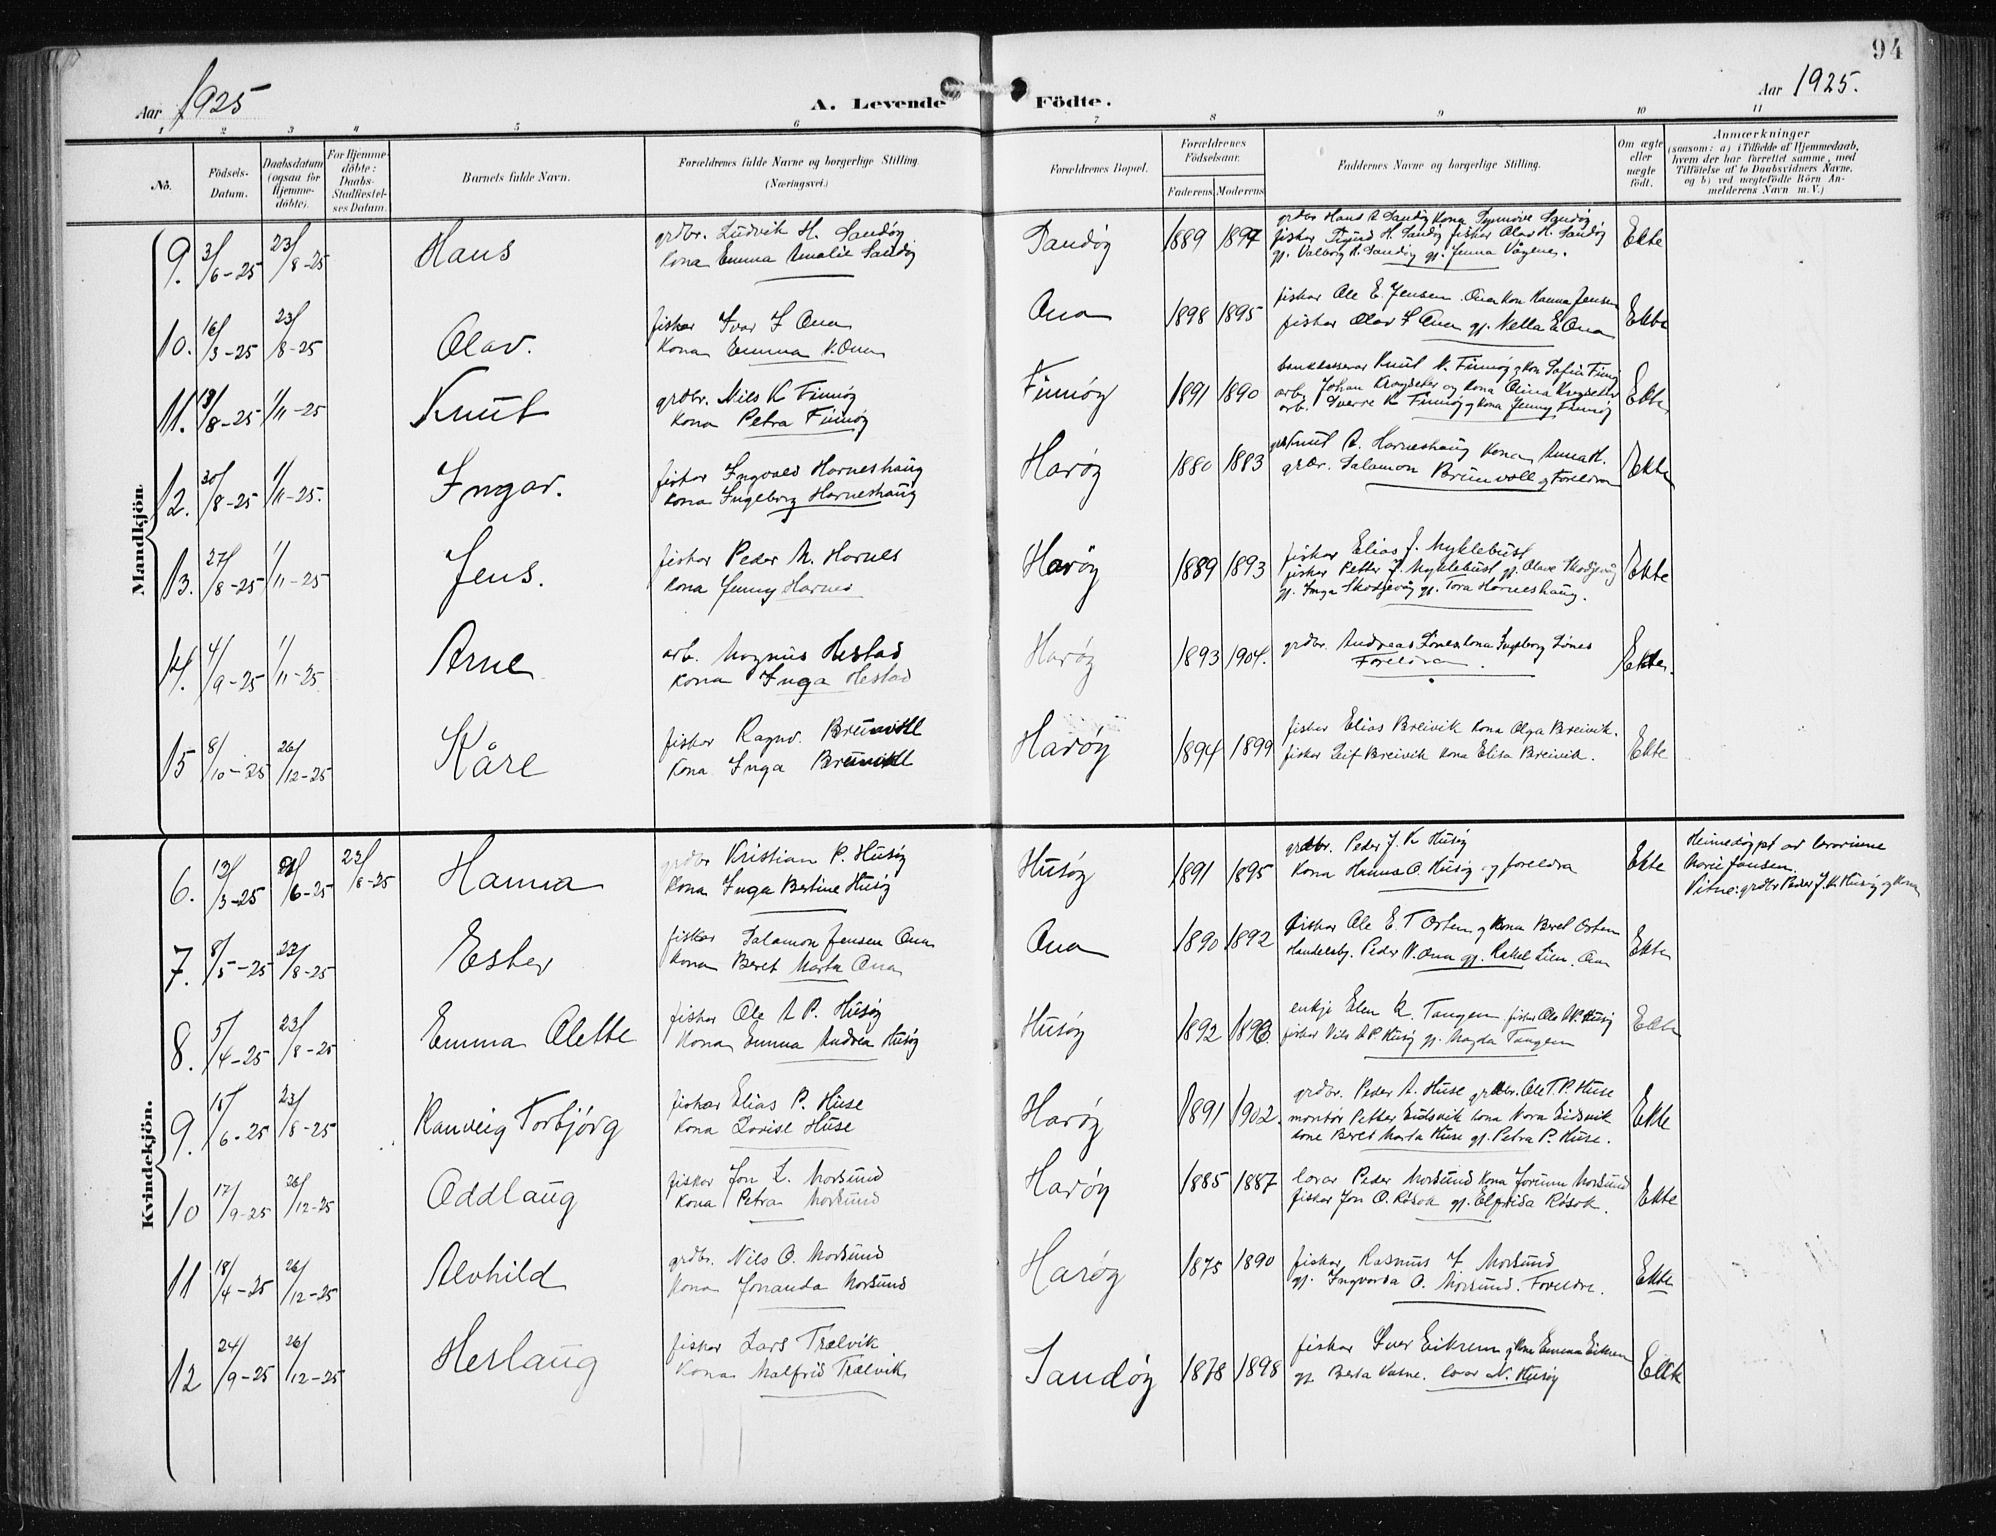 94
Aar 1925
A. Levende Födte.
Aar 1925.
1 2 3 4 5 6 7 8 9 10 11
No.
Födsels-
Datum.
Daabsdatum
(ogsaa for
Hjemme-
döbte).
For Hjemme-
döbte:
Daabs-
Stadfæstel-
ses Datum.
Barnets fulde Navn.
Forældrenes fulde Navne og borgerlige Stilling.
(Næringsvei.)
Forældrenes Bopæl.
Forældrenes
Födselsaar.
Faderens Moderens
Faddernes Navne og borgerlige Stilling.
Om ægte
eller
uægte
födt.
Anmærkninger
(saasom: a) i Tilfælde af Hjemmedaab,
hvem der har forrettet samme, med
Tilföielse af to Daabsvidners Navne,
og b) ved uægtefödte Börn An-
melderens Navn m. V.)
Mandkjön.
9. 3/6-25 23/8-25 Hans
grdbr. Ludvik H. Sandöy
kona Emma Amalie Sandöy
Sandöy 1889 1897
grdbr Hans A Sandöy kona Synnöve Sandöy
fiskar Sigurd H. Sandöy fiskar Olav H. Sandöy
gj. Valborg H. Sandöy gj. Jenna Vågenes.
Ekte
10. 16/3-25 23/8-25 Olav.
fiskar Ivar I Ona
kona Emma K. Ona
Ona 1898 1895
fiskar Ole E. Jensen Ona kon Hanna Jensen
fiskar Olav I Ona gj. Nella E. Ona
Ekte
11. 13/8-25 1/11-25 Knut
grdbr. Nils K Finnöy
kona Petra Finnöy
Finnöy 1891 1890
Knut N. Finnöy og kon Sofia Finnöy
arb. Johan Krogseter og kona Olina Krogseter
arb. Sverre K Finnöy og kona Jenny Finnöy
Ekte
12. 30/8-25 1/11-25. Ingar.
fiskar Ingvald Harneshaug
kona Ingeborg Harneshaug
Haröy 1880 1883
Knut A. Harneshaug kona Anna H.
grdbr. Salamon Brunvoll og Foreldra
Ekte
13. 27/8-25 1/11-25 Jens.
fiskar Peder M. Harnes
kona Jenny Harnes
Haröy 1889 1893
fiskar Elias J. Myklebust
fiskar Petter J. Myklebust gj. Olave Skodjevåg
gj. Inga Skodjevåg gj. Tora Harneshaug.
Ekte
14. 4/9-25 1/11-25. Arne
arb. Magnus Hestad
kona Inga Hestad
Haröy 1893 1904.
grdbr. Andreas Lönes kona Ingeborg Lönes
Foreldra.
Ekte.
15 8/10-25 26/12-25 Kåre
fiskar Ragnv. Brunvoll
kona Inga Brunvoll
Haröy 1894 1899
fiskar Elias Breivik kona Olga Breivik.
fiskar Leif Breivik kona Elisa Breivik.
Ekte
Kvindekjön.
6. 13/3-25 21/6-25 23/8-25 Hanna
grdbr Kristian P. Husöy
kona Inga Bertine Husöy
Husöy 1891 1895
grdbr. Peder J. K Husöy
kona Hanna O. Husöy og foreldra
Ekte
Heimedöypt av lærarinne
Marie Jansen
Vitne: grdbr Peder J. K. Husöy og kona
7. 8/5-25 23/8-25 Ester
fiskar Salamon Jensen Ona
kona Beret Marta Ona
Ona 1890 1892
fiskar Ole E. T Osten og kona Beret Osten
Handelsby. Peder V. Ona gj. Rakel Lien. Ona
Ekte
8. 5/4-25 23/8-25 Emma Olette
fiskar Ole A P. Husöy
kona Emma Andrea Husöy
Husöy 1892 1896.
enkje Elen K. Tangen fiskar Ola A.P. Husöy
fiskar Nils A P. Husöy gj. Magda Tangen
Ekte
9. 15/6-25 23/8-25 Ranveig Torbjörg
fiskar Elias P. Huse
kona Lovise Huse
Haröy 1891 1902.
grdbr. Peder A. Huse grdbr. Ole T. P. Huse
montör Petter Eidsvik kona Nora Eidsvik
kone Beret Marta Huse gj. Petra P. Huse.
Ekte
10 17/9-25 26/12-25 Oddlaug
fiskar Jon L. Morsund
kona Petra Morsund
Haröy 1885 1887
lærar Peder Morsund kona Jorunn Morsund
fiskar Jon O. Rösok gj. Elfrida Rösok.
Ekte
11 18/4-25 26/12-25 Alvhild
grdbr. Nils O. Morsund
kona Jonanda Morsund
Haröy 1875 1890
fiskar Rasmus I. Morsund
gj. Ingvarda O. Morsund. Foreldre.
Ekte
12 24/9-25 26/12-25 Herlaug
fiskar Lars Trælvik
kona Malfrid Trælvik
Sandöy 1878 1898
fiskar Ivar Eikrem og kona Emma Eikrem
gj. Berta Vatne. lærar N. Husöy
Ekte